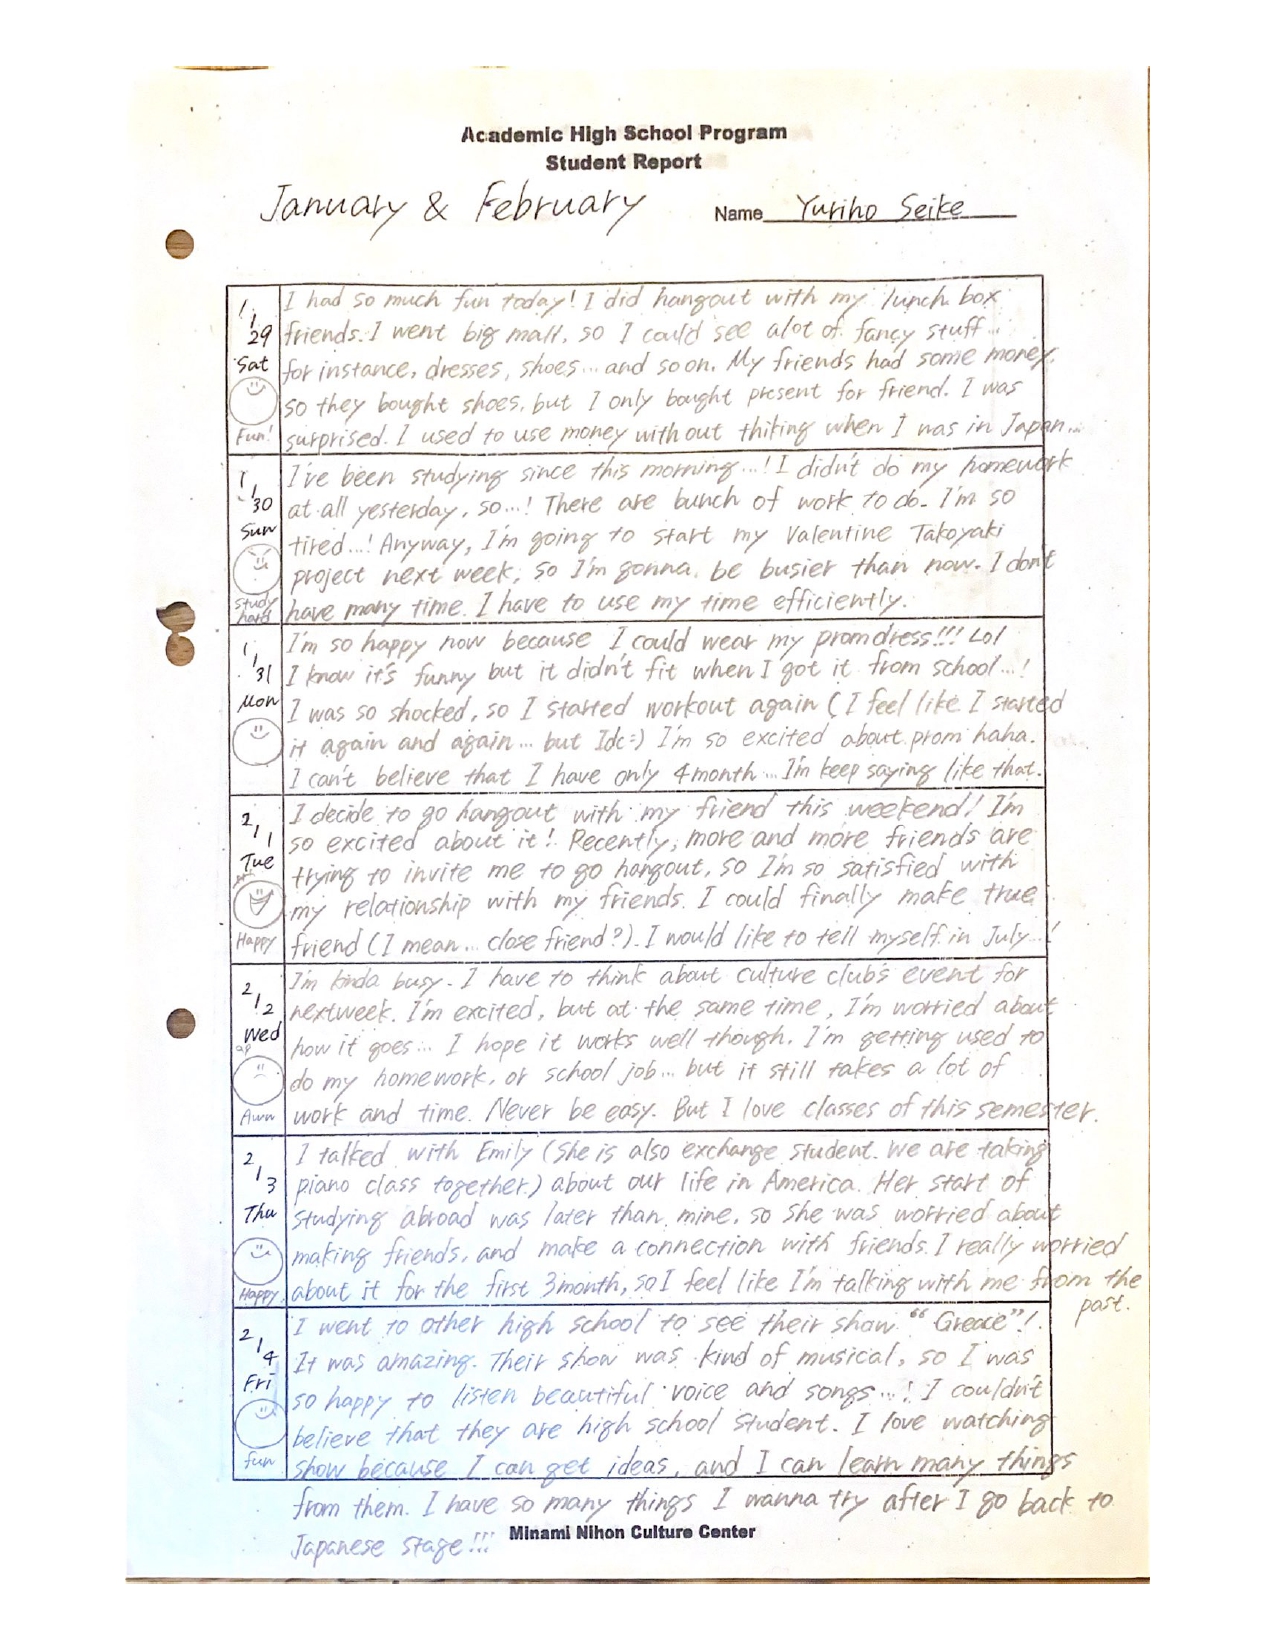 Academic High School Program
Student Report
January & February
Name Yuriho Seike
1/29
Sat
Fun!
I had so much fun today! I did hangout with my lunch box
friends. I went big mall, so I could see alot of fancy stuff...
for instance, dresses, shoes... and soon. My friends had some money.
so they bought shoes, but I only bought present for friend. I was
surprised. I used to use money with out thiking when I was in Japan...
1/30
Sun
Study hard
I've been studying since this morning...! I didn't do my homework
at all yesterday, so...! There are bunch of work to do. I'm so
tired...! Anyway, I'm going to start my Valentine Takoyaki
project next week, so I'm gonna be busier than now. I don't
have many time. I have to use my time efficiently.
1/31
Mon
I'm so happy now because I could wear my promdress!!! Lol
I know it's funny but it didn't fit when I got it from school...!
I was so shocked, so I started workout again (I feel like I started
it again and again... but Idc=) I'm so excited about prom haha.
I can't believe that I have only 4month... I'm keep saying like that.
2/1
Tue
Happy
I decide to go hangout with my friend this weekend! I'm
so excited about it! Recently, more and more friends are
trying to invite me to go hangout, so I'm so satisfied with
my relationship with my friends. I could finally make true
friend (I mean... close friend?). I would like to tell myself in July...!
2/2
Wed
Aww
I'm kinda busy. I have to think about culture club's event for
nextweek. I'm excited, but at the same time, I'm worried about
how it goes... I hope it works well though. I'm getting used to
do my homework, or school job... but it still takes a lot of
work and time. Never be easy. But I love classes of this semester.
2/3
Thu
Happy
I talked with Emily (She is also exchange student. We are taking
piano class together.) about our life in America. Her start of
studying abroad was later than mine, so she was worried about
making friends, and make a connection with friends. I really worried
about it for the first 3month, so I feel like I'm talking with me from the
past.
2/4
Fri
fun
I went to other high school to see their show "Greace"!.
It was amazing. Their show was kind of musical, so I was
so happy to listen beautiful voice and songs...! I couldn't
believe that they are high school student. I love watching
show because I can get ideas, and I can learn many things
from them. I have so many things I wanna try after I go back to
Japanese stage!!!
Minami Nihon Culture Center